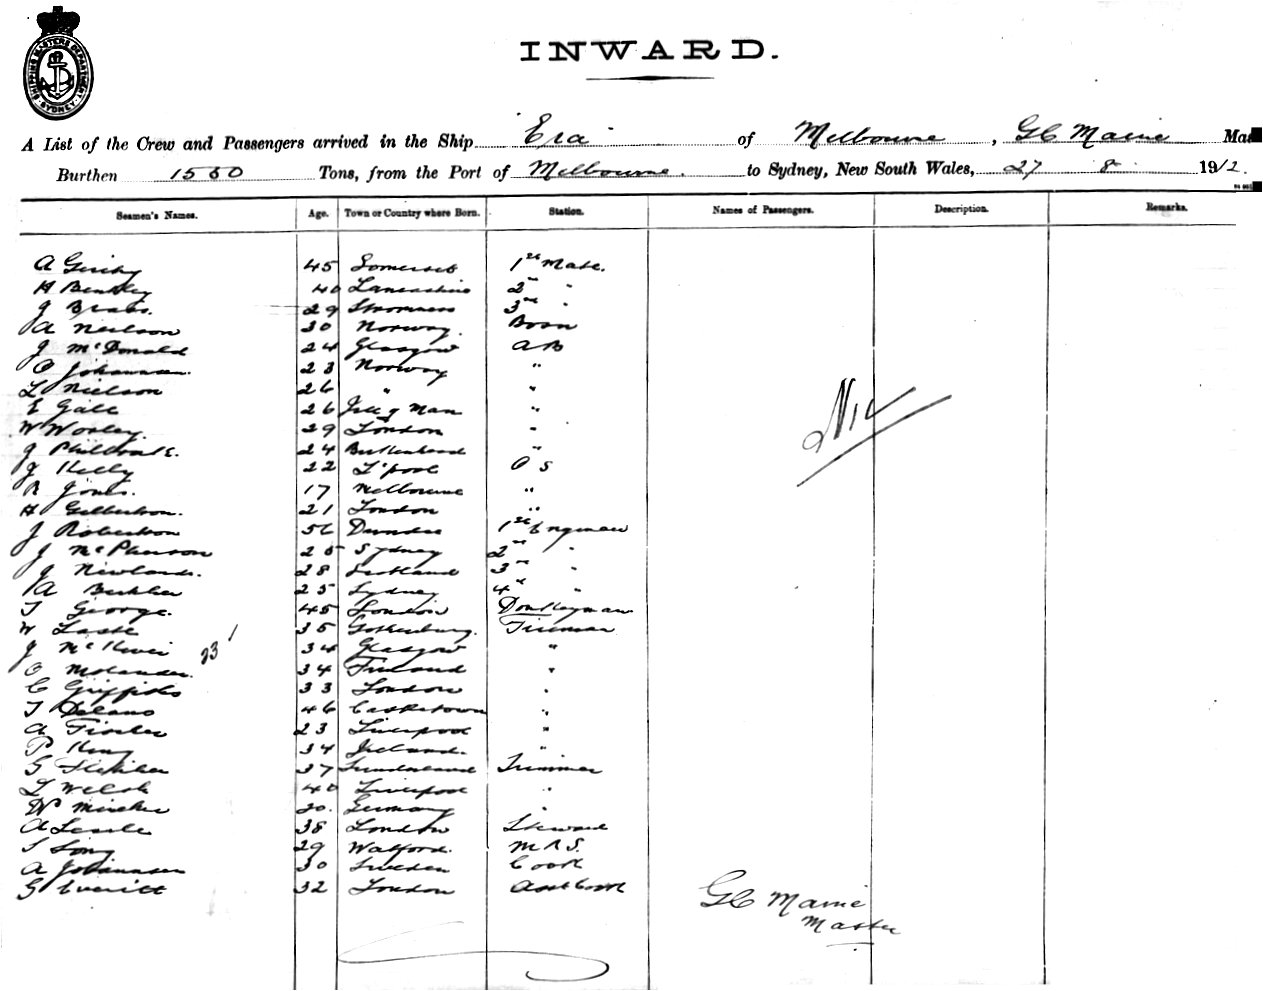 SHIPPING MASTERS DEPARTMENT SYDNEY
INWARD.
A List of the Crew and Passengers arrived in the Ship Era of Melbourne, GC Maine Mas
Burthen 1550 Tons, from the Port of Melbourne. to Sydney, New South Wales, 27 8 1912.
Seamen's Names. Age. Town or Country where Born. Station. Names of Passengers. Description. Remarks.
A 45 Somerset 1st Mate.
H Bentley 40 Lancashire 2nd "
J Brass. 29 Stromness 3rd "
A Neilson 30 Norway. Bosn
J McDonald 24 Glasgow AB
O Johannsen. 23 Norway "
L Nielson 26 " "
E Gale 26 Isle of Man "
W Worley. 29 London "
J 24 Birkenhead "
J Kelly 22 L'pool O S
R Jones. 17 Melbourne "
H Gilbertson. 21 London "
J Robertson 56 Dundee 1st Engineer
J McPherson 25 Sydney 2nd "
J Newlands. 28 Scotland 3rd "
A 25 Sydney 4th "
T George. 45 London Donkeyman
W 35 Gothenburg. Fireman
J 34 Glasgow "
O Molander. 34 Finland "
C Griffiths 33 London "
T Delano 46 "
A Fischer 23 Liverpool "
P King 34 Ireland. "
G Fletcher 37 Sunderland Trimmer
L Welsh 40 Liverpool "
W 20. Germany "
A Leslie 38 London Steward
S Long 29 Watford. M R S.
A Johannsen 30 Sweden Cook
G Everitt 32 London Asst Cook
Nil
23 1
GC Maine
Master